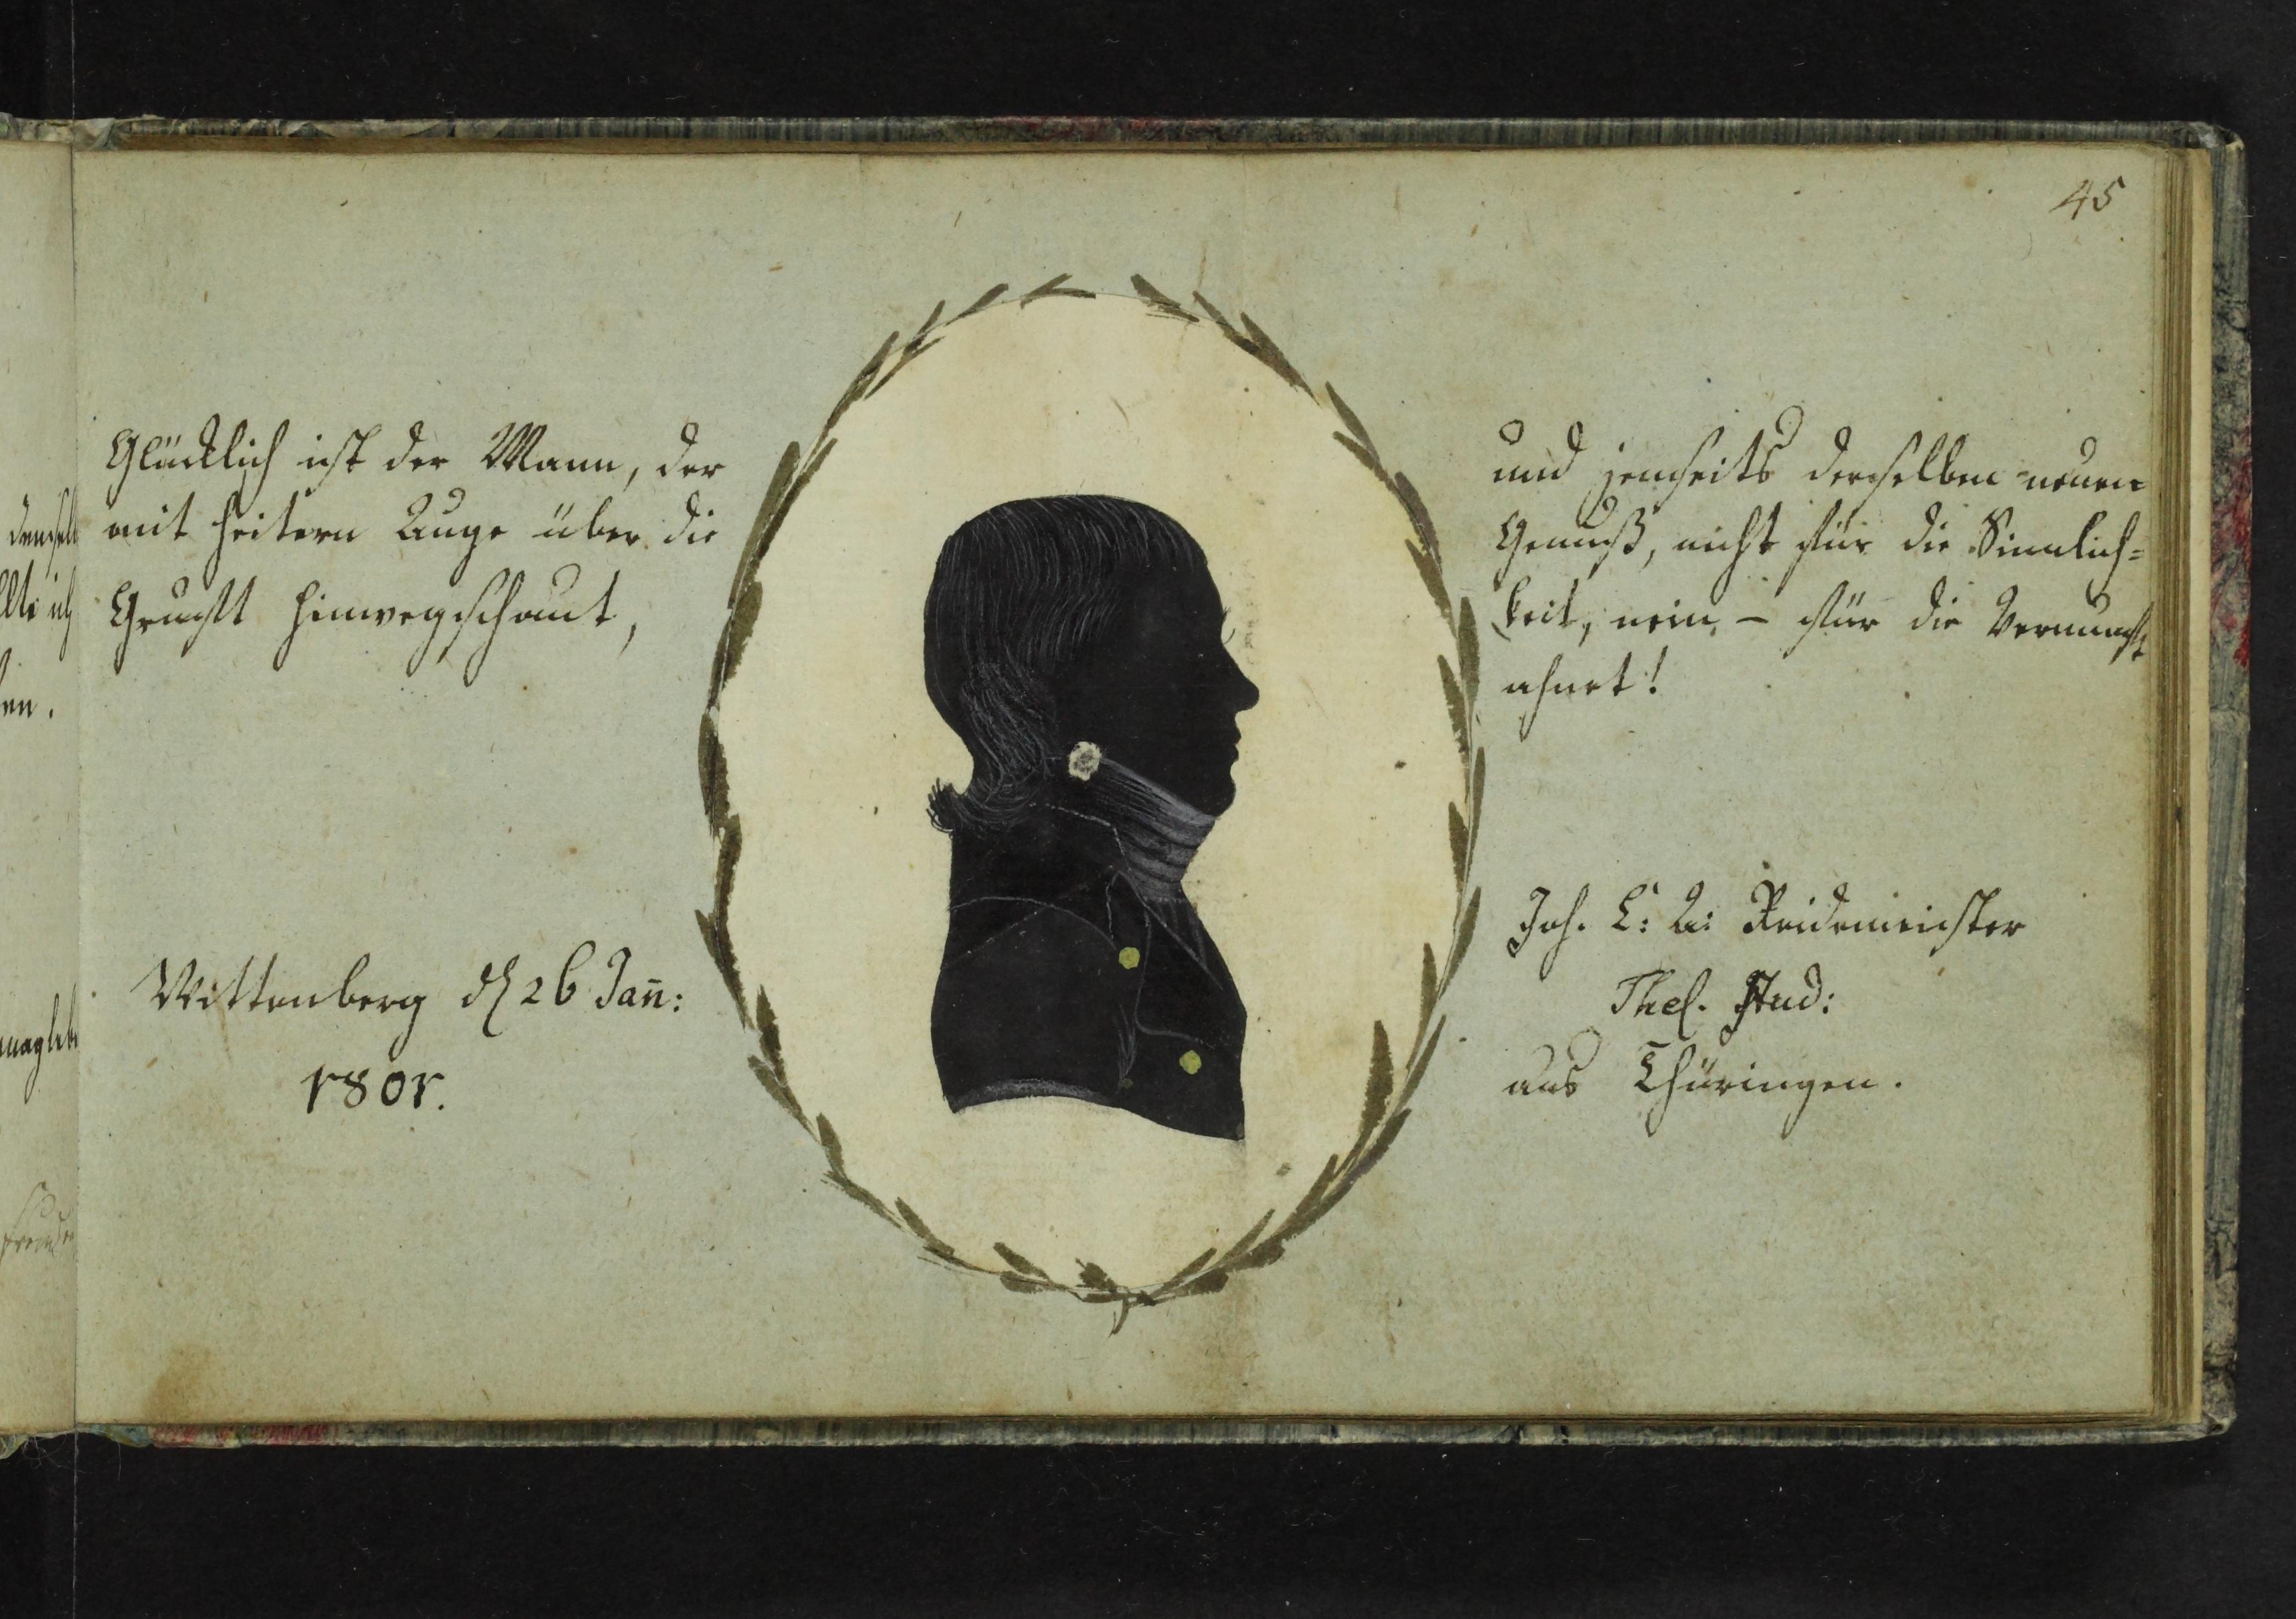 45
Glücklich ist der Mann, der
mit heitern Auge über die
Gruft hinwegschaut,
und jenseits derselben neuen
Genuß, nicht für die Sinnlich=
keit, nein, – für die Vernunft
ahnet!
Wittenberg d 26 Jan̄:
1801.
Joh. C: A: Reidemeister
Theol. Stud:
aus Thüringen.